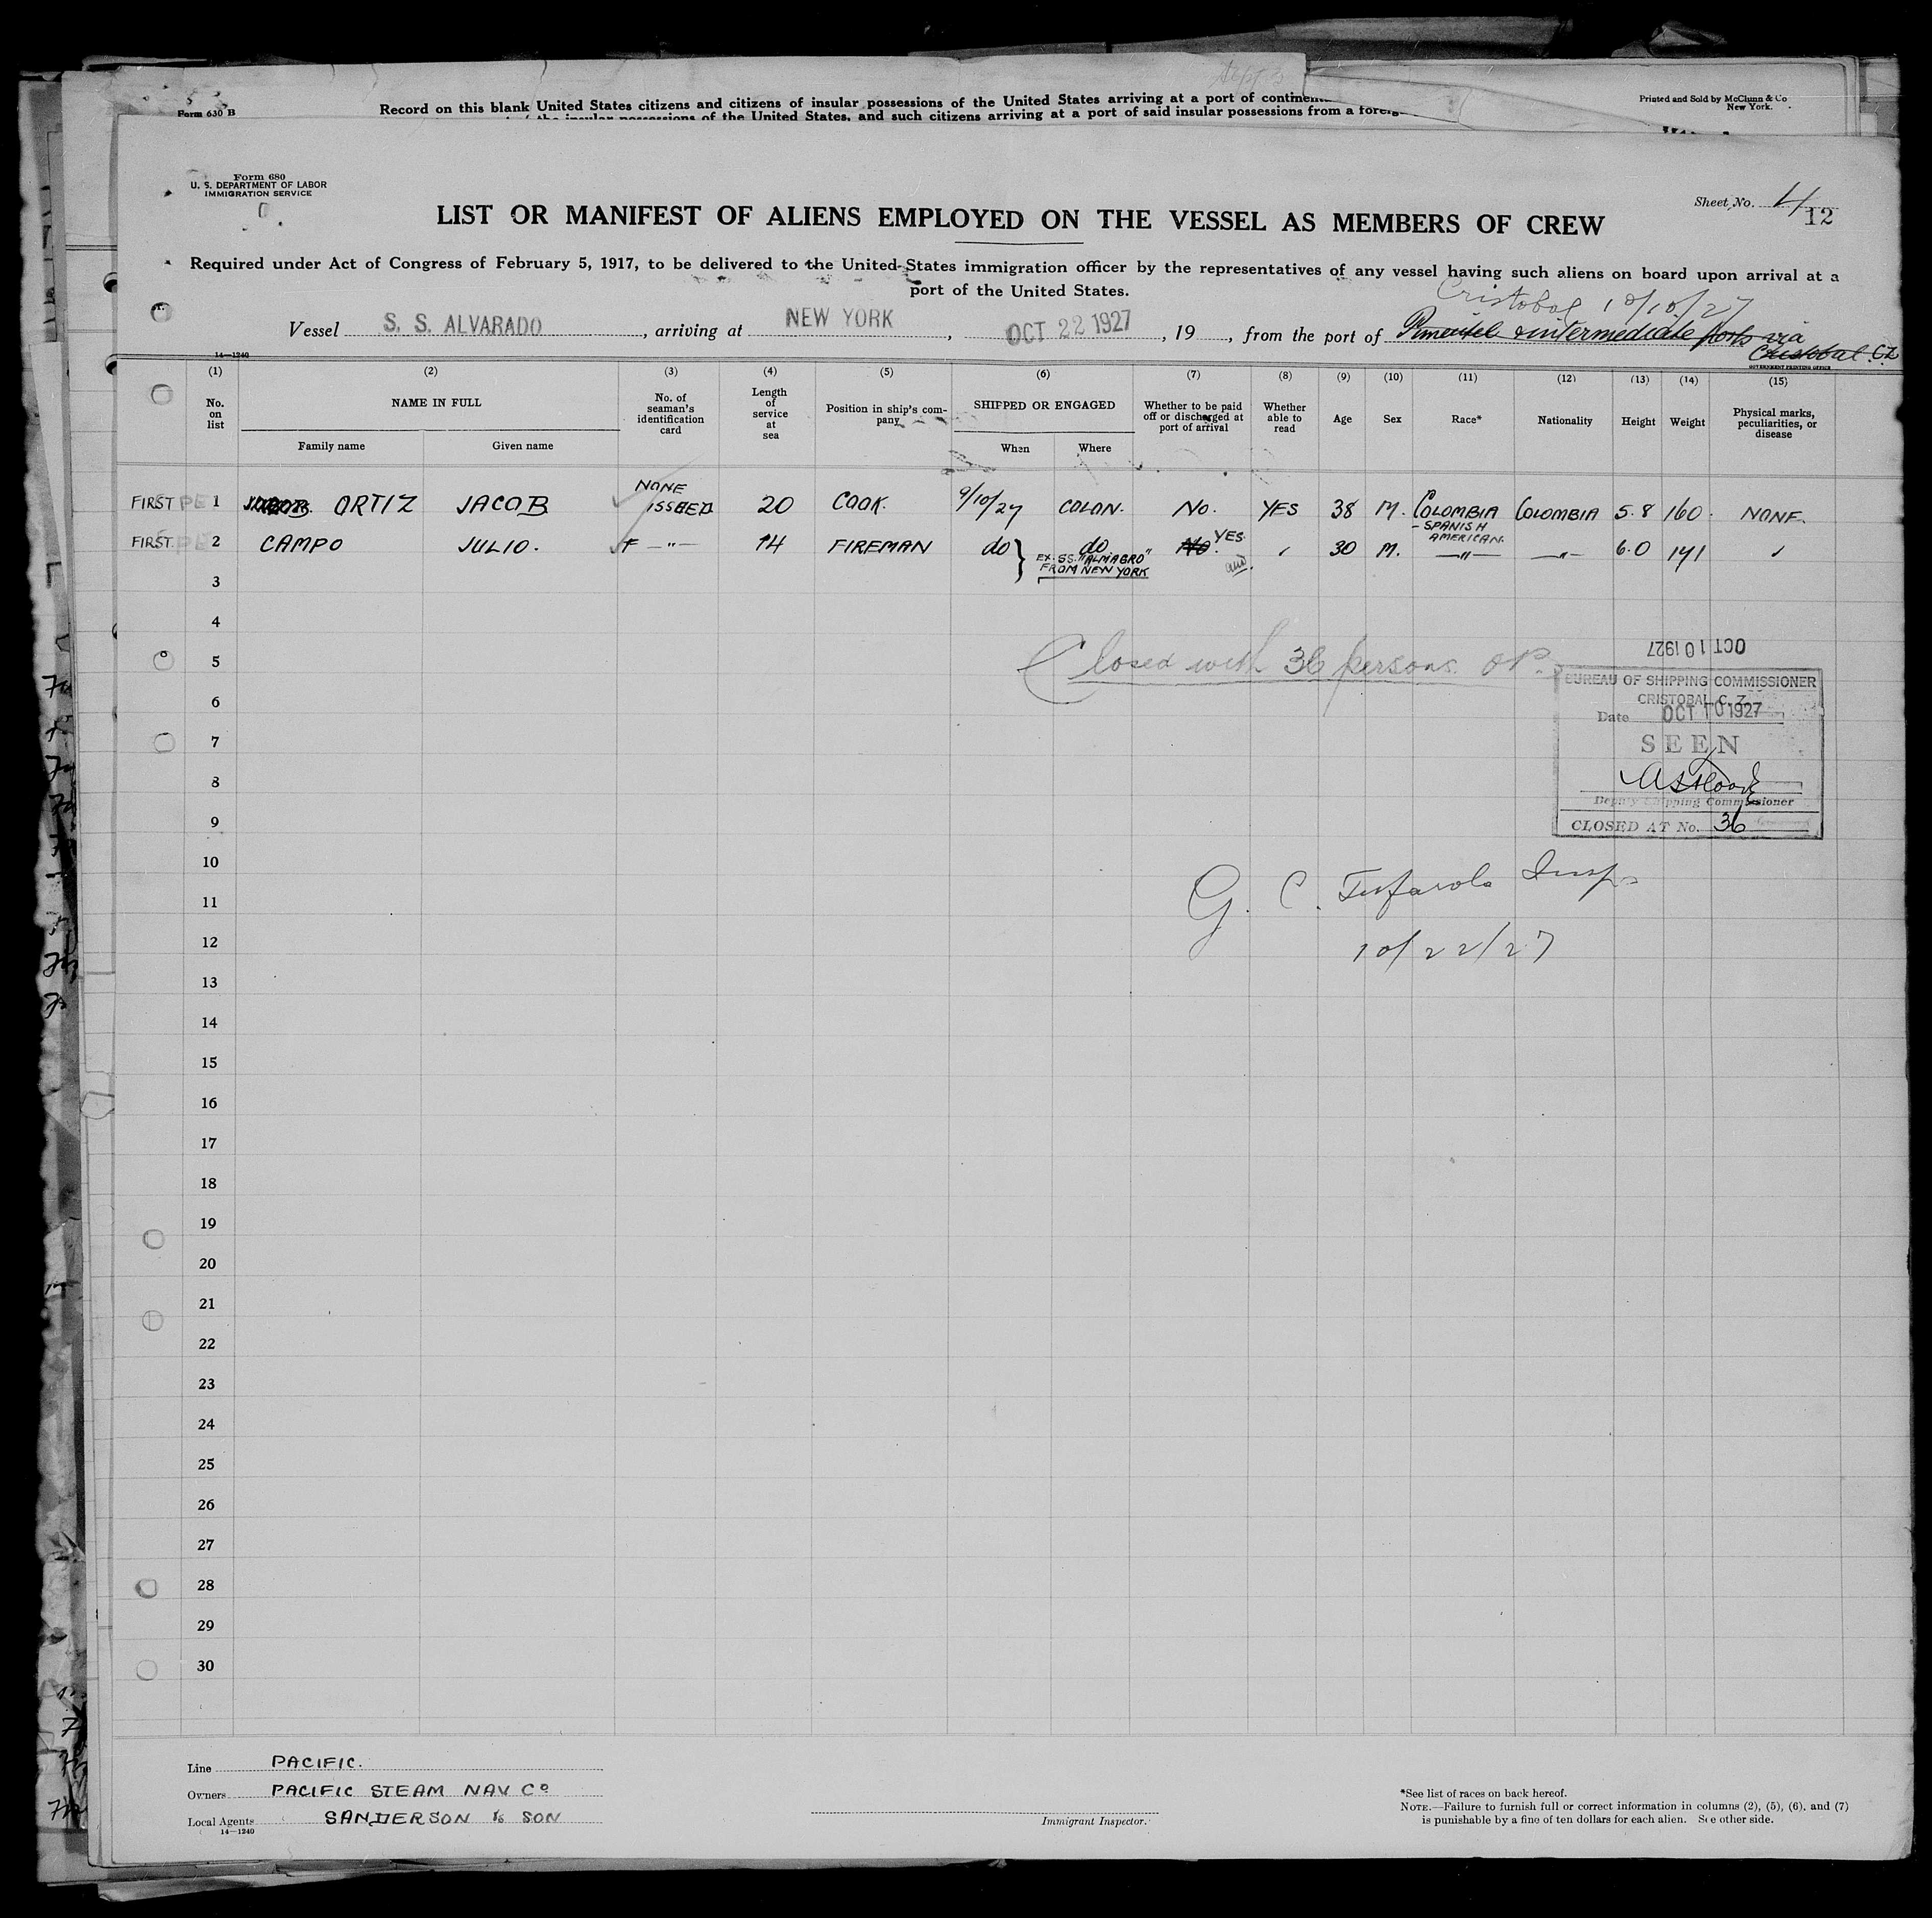 Form 630 B
Record on this blank United States citizens and citizens of insular possessions of the United States arriving at a port of
of the insular possessions of the United States, and such citizens arriving at a port of said insular possessions from a
Printed and Sold by McClunn & Co
New York.
Form 680
U. S. DEPARTMENT OF LABOR
IMMIGRATION SERVICE
Sheet No. 4
12
LIST OR MANIFEST OF ALIENS EMPLOYED ON THE VESSEL AS MEMBERS OF CREW
Required under Act of Congress of February 5, 1917, to be delivered to the United States immigration officer by the representatives of any vessel having such aliens on board upon arrival at a
port of the United States.
Cristobal 10/10/27
Vessel S. S. ALVARADO, arriving at NEW YORK, OCT 22 1927, 19, from the port of Pimentel & intermediate ports via
Cristobal. CZ
14—1240
GOVERNMENT PRINTING OFFICE
(1) (2) (3) (4) (5) (6) (7) (8) (9) (10) (11) (12) (13) (14) (15)
No. on list NAME IN FULL Family name Given name No. of seaman's identification card Length of service at sea Position in ship's company SHIPPED OR ENGAGED When Where Whether to be paid off or discharged at port of arrival Whether able to read Age Sex Race* Nationality Height Weight Physical marks, peculiarities, or disease
FIRST 1 ORTIZ JACOB NONE ISSUED 20 COOK. 9/10/27 COLON. No. YES 38 M. COLOMBIA - SPANISH AMERICAN. COLOMBIA 5.8 160. NONE.
FIRST. 2 CAMPO JULIO. —"— 14 FIREMAN do do No. YES 30 M. —"— —"— 6.0 141
EX. SS. "ALMAGRO"
FROM NEW YORK
3
4
5
Closed with 36 persons
OCT 10 1927
BUREAU OF SHIPPING COMMISSIONER
CRISTOBAL C. Z.
Date OCT 10 1927
SEEN
Deputy Shipping Commissioner
CLOSED AT No. 36
6
7
8
9
10
G. C. Insp.
11
12
10/22/27
13
14
15
16
17
18
19
20
21
22
23
24
25
26
27
28
29
30
Line PACIFIC.
Owners PACIFIC STEAM NAV Co
Local Agents SANDERSON & SON
14—1240
Immigrant Inspector.
*See list of races on back hereof.
NOTE.—Failure to furnish full or correct information in columns (2), (5), (6), and (7)
is punishable by a fine of ten dollars for each alien. See other side.